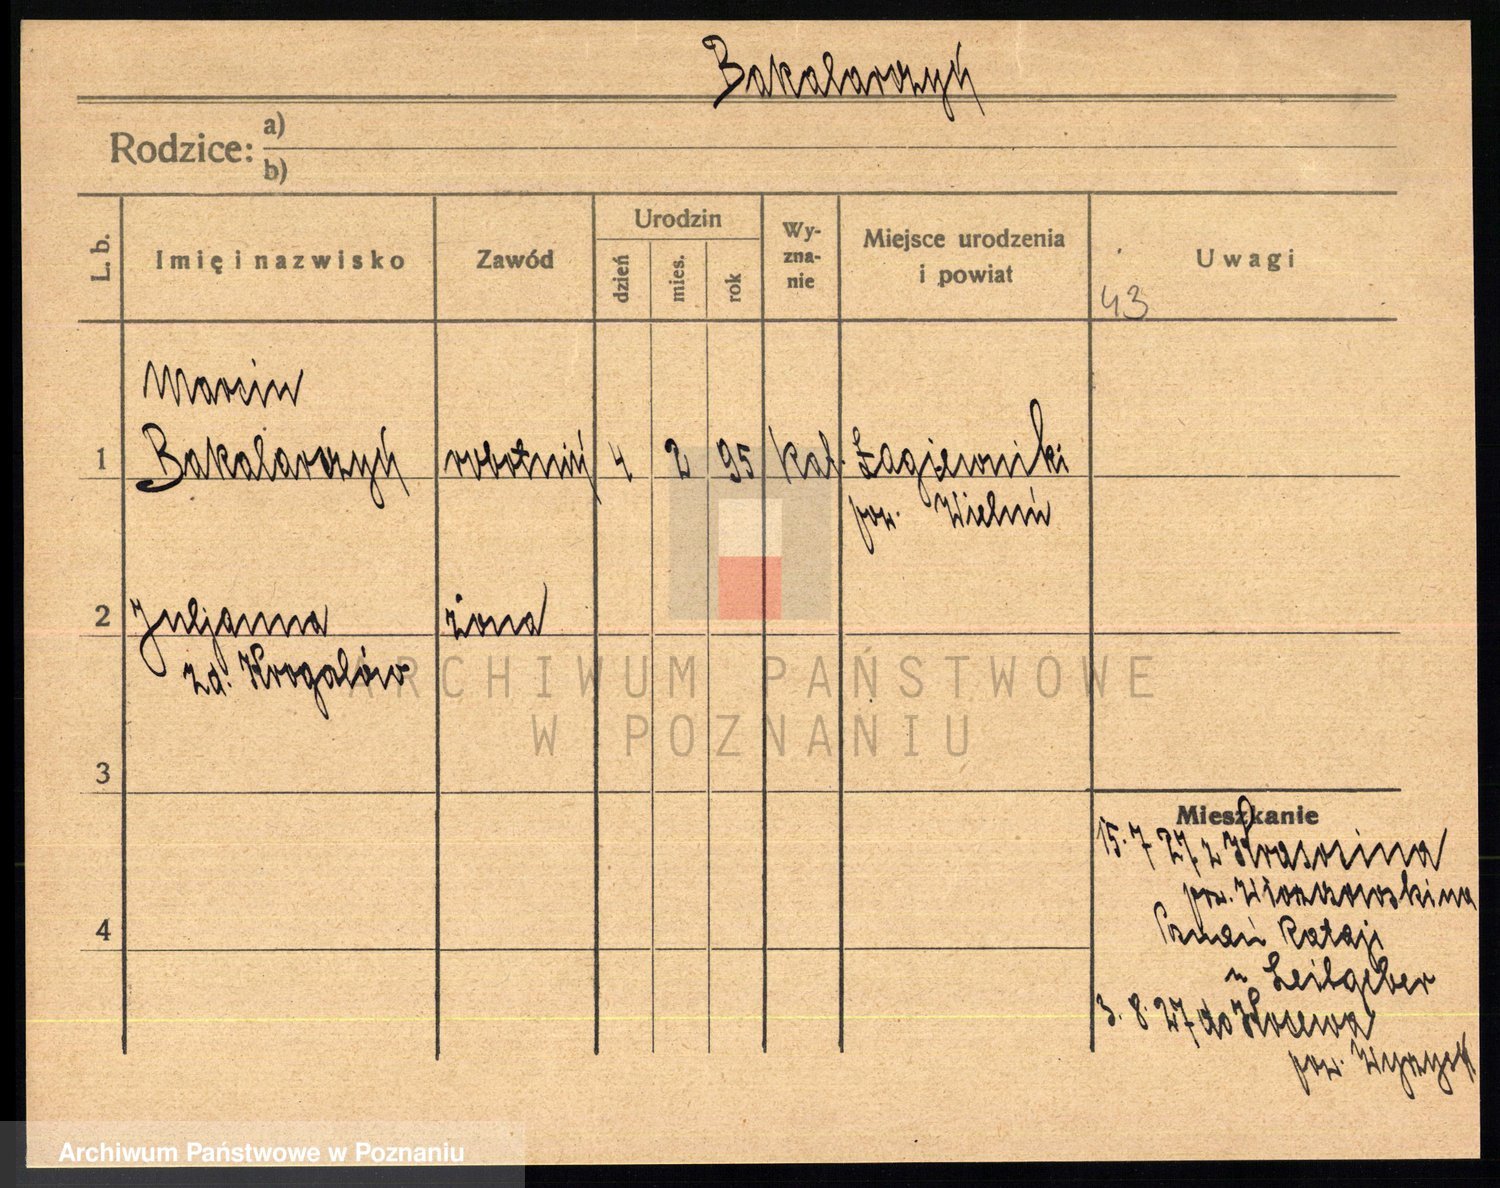 Bakalarczyk
Rodzice: a)
b)
L. b.
Imię i nazwisko
Zawód
Urodzin
dzień
mies.
rok
Wy-
zna-
nie
Miejsce urodzenia
i powiat
Uwagi
43
Marcin
1 Bakalarczyk robotnik 4 2 95 kat. Łagiewniki
pow. Wieluń
2 Juljanna żona
zd.
3
Mieszkanie
15.7 27 z
pow.
4 Poznań Rataje
u Leitgeber
3.8.27 do
pow. Wyrzysk
ARCHIWUM PAŃSTWOWE
W POZNANIU
Archiwum Państwowe w Poznaniu